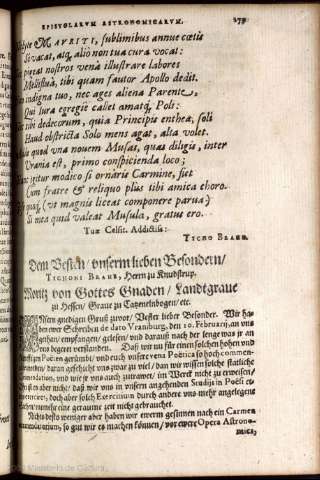 EPISTOLARVM ASTRONOMICARVM. 279
MAVRITI, sublimibus annue cœtis
Si vacat, atq, alió non tua cura vocat:
nostros venâ illustrare labores
Mellifluâ, tibi quam fautor Apollo dedit.
indigna tuo, nec ages aliena Parente,
Qui iura egregiè callet amatq, Poli:
tibi dedecorum, quia Principis entheâ, soli
Haud obstricta Solo mens agat, alta volet.
quid vna nouem Musas, quas diligis, inter
Vrania est, primo conspicienda loco;
igitur modico si ornâris Carmine, siet
Cum fratre & reliquo plus tibi amica choro.
(vt magnis liceat componere parua)
Si mea quid valeat Musula, gratus ero.
Tuæ Celsit. Addictiss:
TYCHO BRAHE.
Dem Vesten/ vnserm lieben Besondern/
TYCHONI BRAHE, Herrn zu Knudstrup.
Moritz von Gottes Gnaden/ Landtgraue
zu Hessen/ Graue zu Catzenelnbogen/ etc.
gnedigen Gruß zuvor/ Vester lieber Besonder. Wir ha-
ben ewer Schreiben de dato Vraniburg, den 10. Februarij, an vns
gethan/ empfangen/ gelesen/ vnd darauß nach der lenge was jr an
vns begeret verstanden. Daß wir nu für einen solchen hohen vnd
Poëten gerühmbt/ vnd euch vnsere vena Poëtica so hoch commen-
daran geschicht vns zwar zu viel/ dan wir wissen solche stattliche
commendation, vnd wie jr vns auch zutrawet/ im Werck nicht zu erweisen/
ist aber nicht/ daß wir vns in vnsern angehenden Studijs in Poësi
doch aber solch Exercitium durch andere vns mehr angelegene
eine geraume zeit nicht gebrauchet.
Nichts desto weniger aber haben wir ewerm gesinnen nach ein Carmen
so gut wir es machen können/ vor ewere Opera Astrono-
mica,